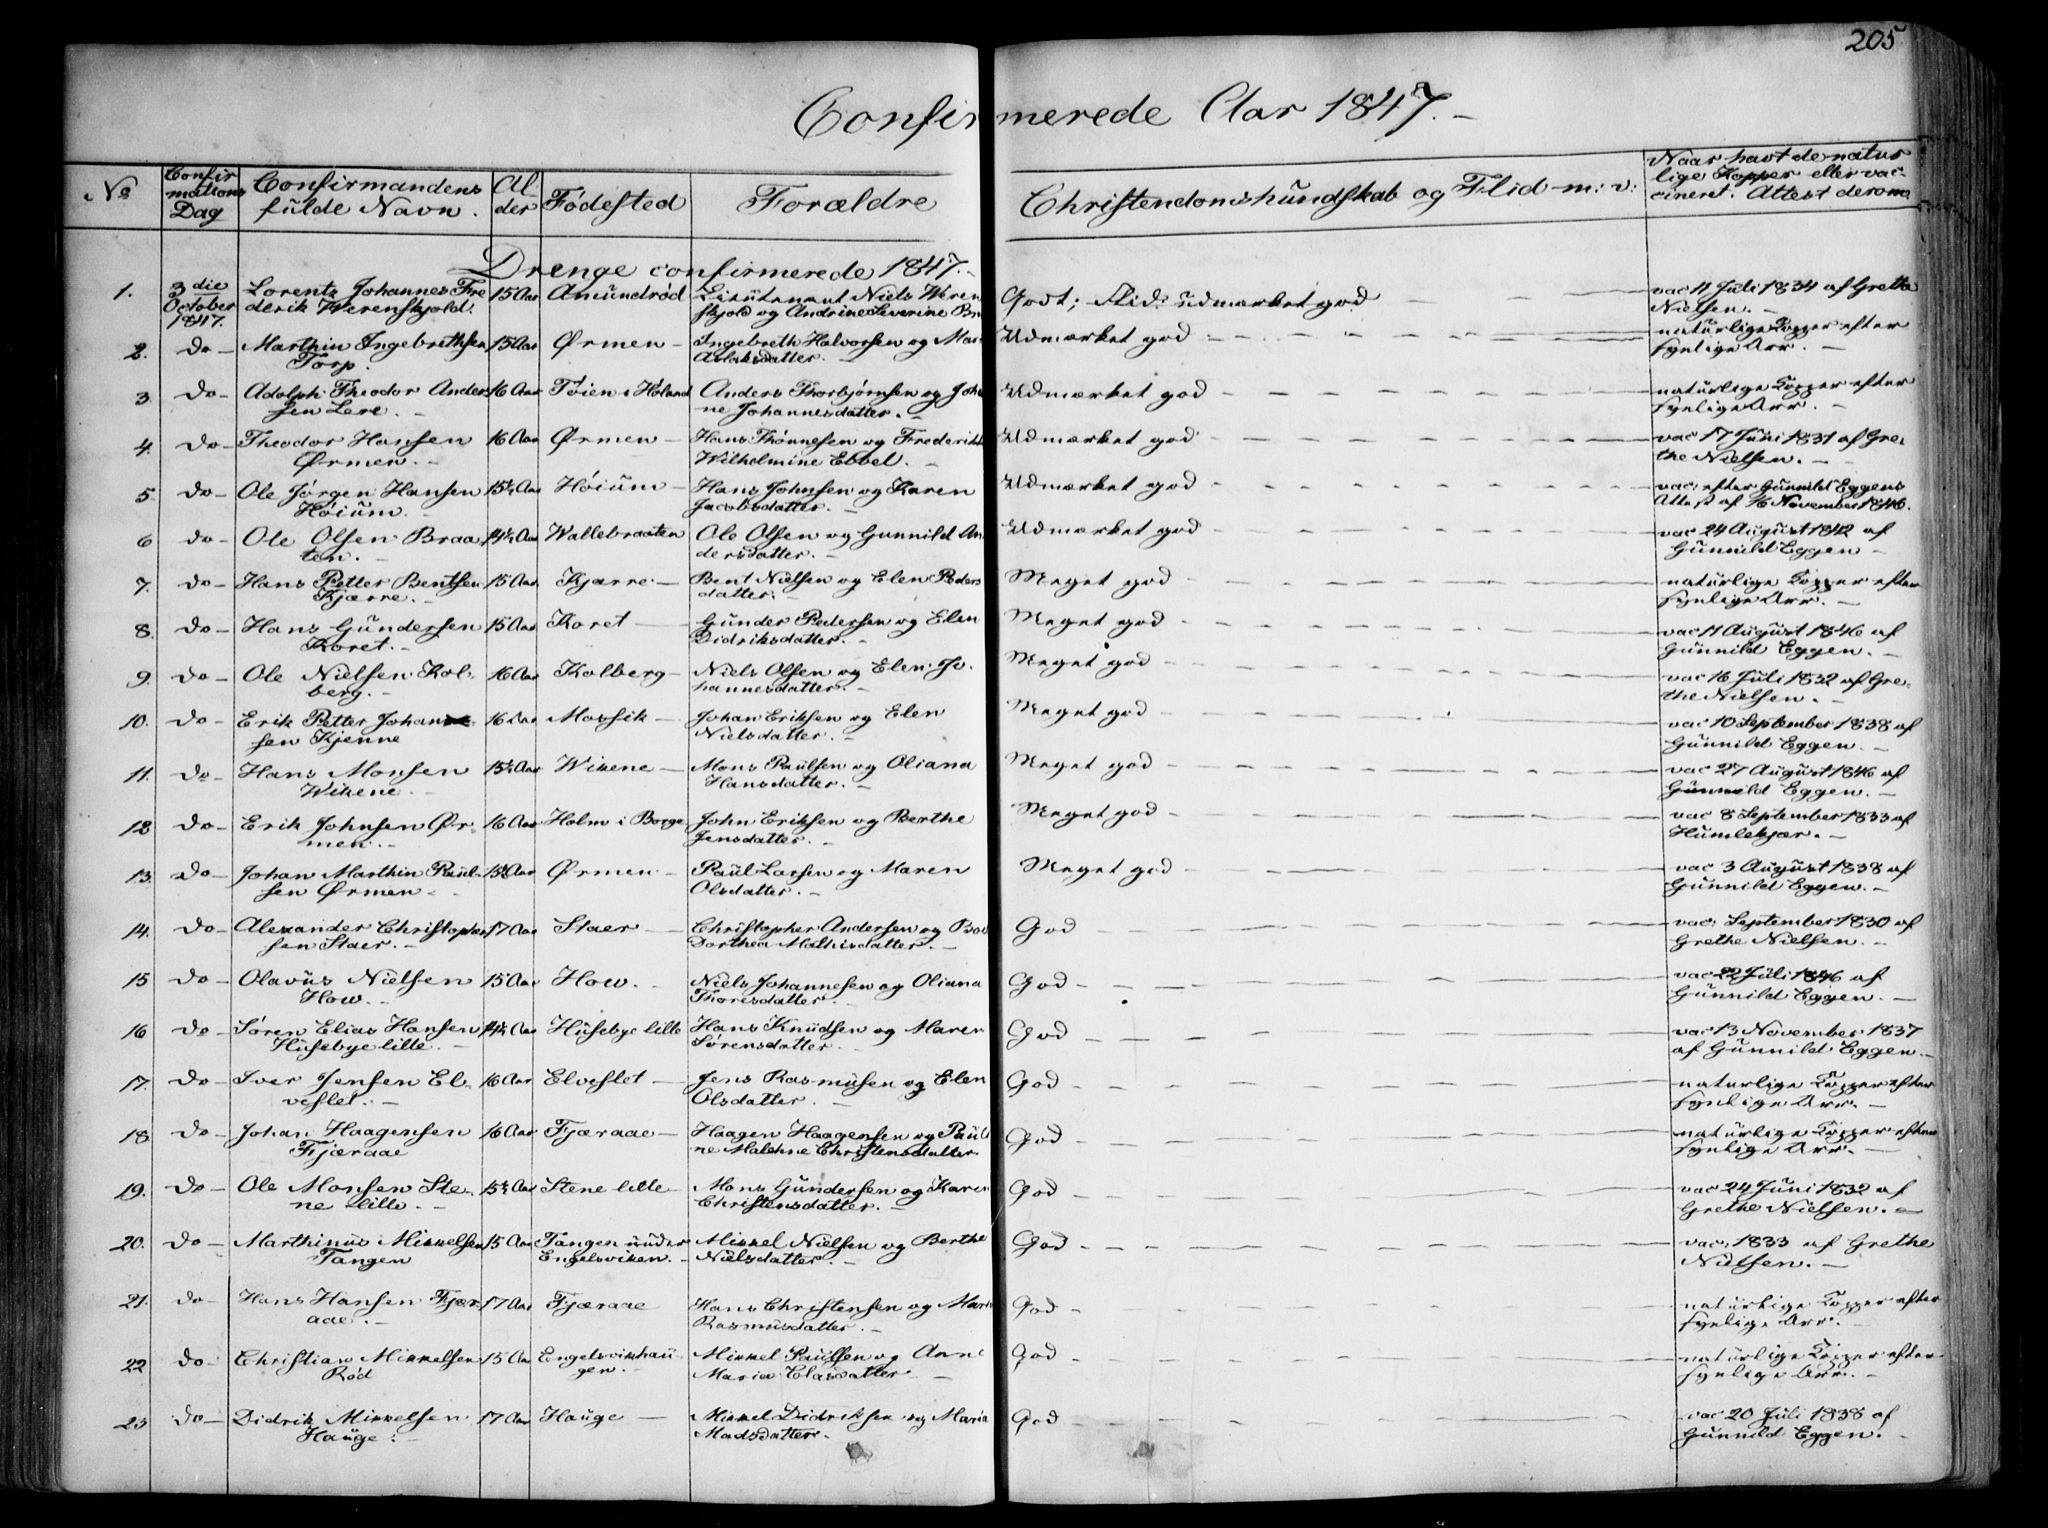 205
Confirmerede Aar 1847.
No
Confirmations Dag
Confirmandens fulde Navn.
Alder
Födested
Forældre
Christendomskundskab og Flid m: v:
Naar havt de naturlige Kopper eller vaccineret. Attest derom
Drenge confirmerede 1847.
1. 3die Lorents Johannes Fre 15 Aar Amundröd Lieutenant Niels Weren Godt; Flid: udmærket god vac 11 Juli 1834 af Grethe
October 1847. derik Werenskjold. skjold og Andrine Severine Nielsen.
2. do Marthin Ingebrethsen 15 Aar Ørmen Ingebreth Halvorsen og Mari Udmærket god naturlige Kopper efter
Torp. Aslaksdatter. synlige Arr.
3. do Adolph Theodor Anders 16 Aar Töien i Höland Anders Thorbjørnsen og Joha Udmærket god naturlige Kopper efter
sen Lere. ne Johannesdatter. synlige Arr.
4. do Theodor Hansen 16 Aar Ørmen Hans Thönnesen og Frederikke Udmærket god vac 17 Juni 1831 af Gre
Ørmen. Wilhelmine Ebbel. the Nielsen.
5. do Ole Jørgen Hansen 15½ Aar Höium Hans Johnsen og Karen Udmærket god vac: efter Gunnild Eggens
Höium. Jacobsdatter. Attest af 16 November 1846.
6 do Ole Olsen Braa 14½ Aar Wallebraaten Ole Olsen og Gunnild An Udmærket god vac 24 August 1842 af
ten. dersdatter. Gunnild Eggen
7. do Hans Petter Bentsen 15 Aar Kjærre Bent Nielsen og Elen Peders Meget god naturlige Kopper efter
Kjærre. datter. synlige Arr.
8. do Hans Gundersen 15 Aar Koret Gunder Pedersen og Elen Meget god vac 11 August 1846 af
Koret. Didriksdatter. Gunnild Eggen.
9. do Ole Nielsen Kol 16 Aar Kolberg Niels Olsen og Elen Jo Meget god vac 16 Juli 1832 af Gre
berg. hannesdatter. the Nielsen.
10. do Erik Petter Johan 16 Aar Mossik Johan Eriksen og Elen Meget god vac 10 September 1838 af
sen Kjenne Nielsdatter. Gunnild Eggen.
11. do Hans Monsen 15½ Aar Wikene Mons Paulsen og Oliana Meget god vac 27 August 1846 af
Wikene. Hansdatter. Gunnild Eggen.
12 do Erik Johnsen Ør 16 Aar Holm i Borge John Eriksen og Berthe Meget god vac 8 September 1833 af
men. Jensdatter. Humlekjær.
13. do Johan Marthin Paul 15½ Aar Ørmen Paul Larsen og Maren Meget god vac 3 August 1838 af
sen Ørmen Olsdatter. Gunnild Eggen.
14. do Alexander Christopher 17 Aar Staer Christopher Andersen og God vac: September 1830 af
sen Staer. Dorthea Mathisdatter. Grethe Nielsen.
15 do Olavus Nielsen 15 Aar How. Niels Johannesen og Oliana God vac 22 Juli 1846 af
How. Thoresdatter. Gunnild Eggen.
16 do Sören Elias Hansen 14½ Aar Husebye lille Hans Knudsen og Maren God vac 13 November 1837
Husebye lille. Sörensdatter. af Gunnild Eggen.
17. do Iver Jensen El 16 Aar Elveslet Jens Rasmusen og Elen God naturlige Kopper efter
veslet. Olsdatter. synlige Arr.
18. do Johan Haagensen 16 Aar Fjæraae Haagen Haagensen og Pauli God naturlige Kopper efter
Fjæraae ne Malehne Christensdatter synlige Arr.
19. do Ole Monsen Ste 15½ Aar Stene lille Mons Gundersen og Karen God vac 24 Juni 1832 af
ne lille. Christensdatter. Grethe Nielsen.
20. do Marthinus Mikkelsen 15 Aar Tangen under Mikkel Nielsen og Berthe God vac: 1833 af Grethe
Tangen Engelsviken. Nielsdatter. Nielsen.
21. do Hans Hansen Fjær 17 Aar Fjæraae Hans Christensen og Mari God naturlige Kopper efter
aae. Rasmusdatter. synlige Arr.
22 do Christian Mikkelsen 15 Aar Engelsvikhau Mikkel Paulsen og Anne God naturlige Kopper efter
Röd gen. Maria Elasdatter synlige Arr.
23 do Didrik Mikkelsen 17 Aar Hauge Mikkel Didriksen og Maria God vac 20 Juli 1838 af
Hauge. Madsdatter. Gunnild Eggen.